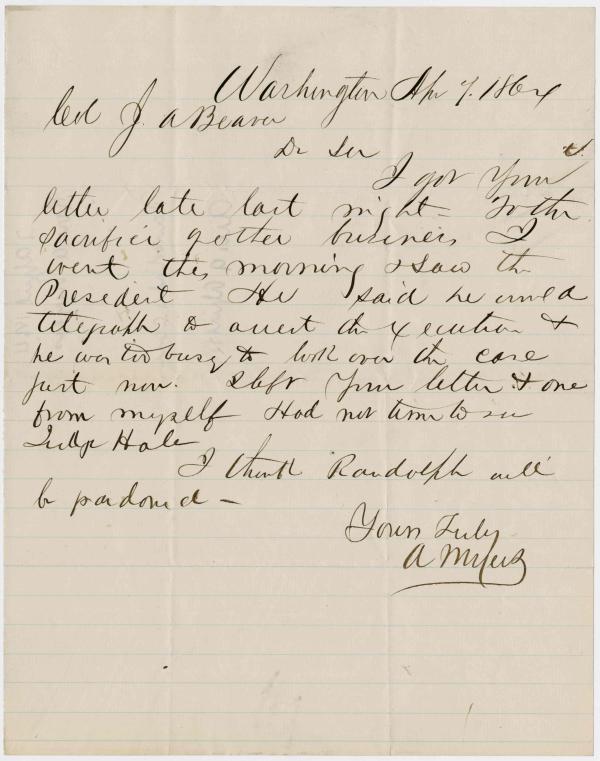 Washington Apr 7. 1864
Col J. A Beaver
Dr Sir
I got Your
letter late last night – To the
sacrifice of other business I
went this morning & saw the
President He said he would
telegraph to arrest the execution &
he was too busy to look over the case
just now. I left Your letter & one
from myself Had not time to see
Judge Hale
I think Randolph will
be pardoned –
Yours Truly
A Myers